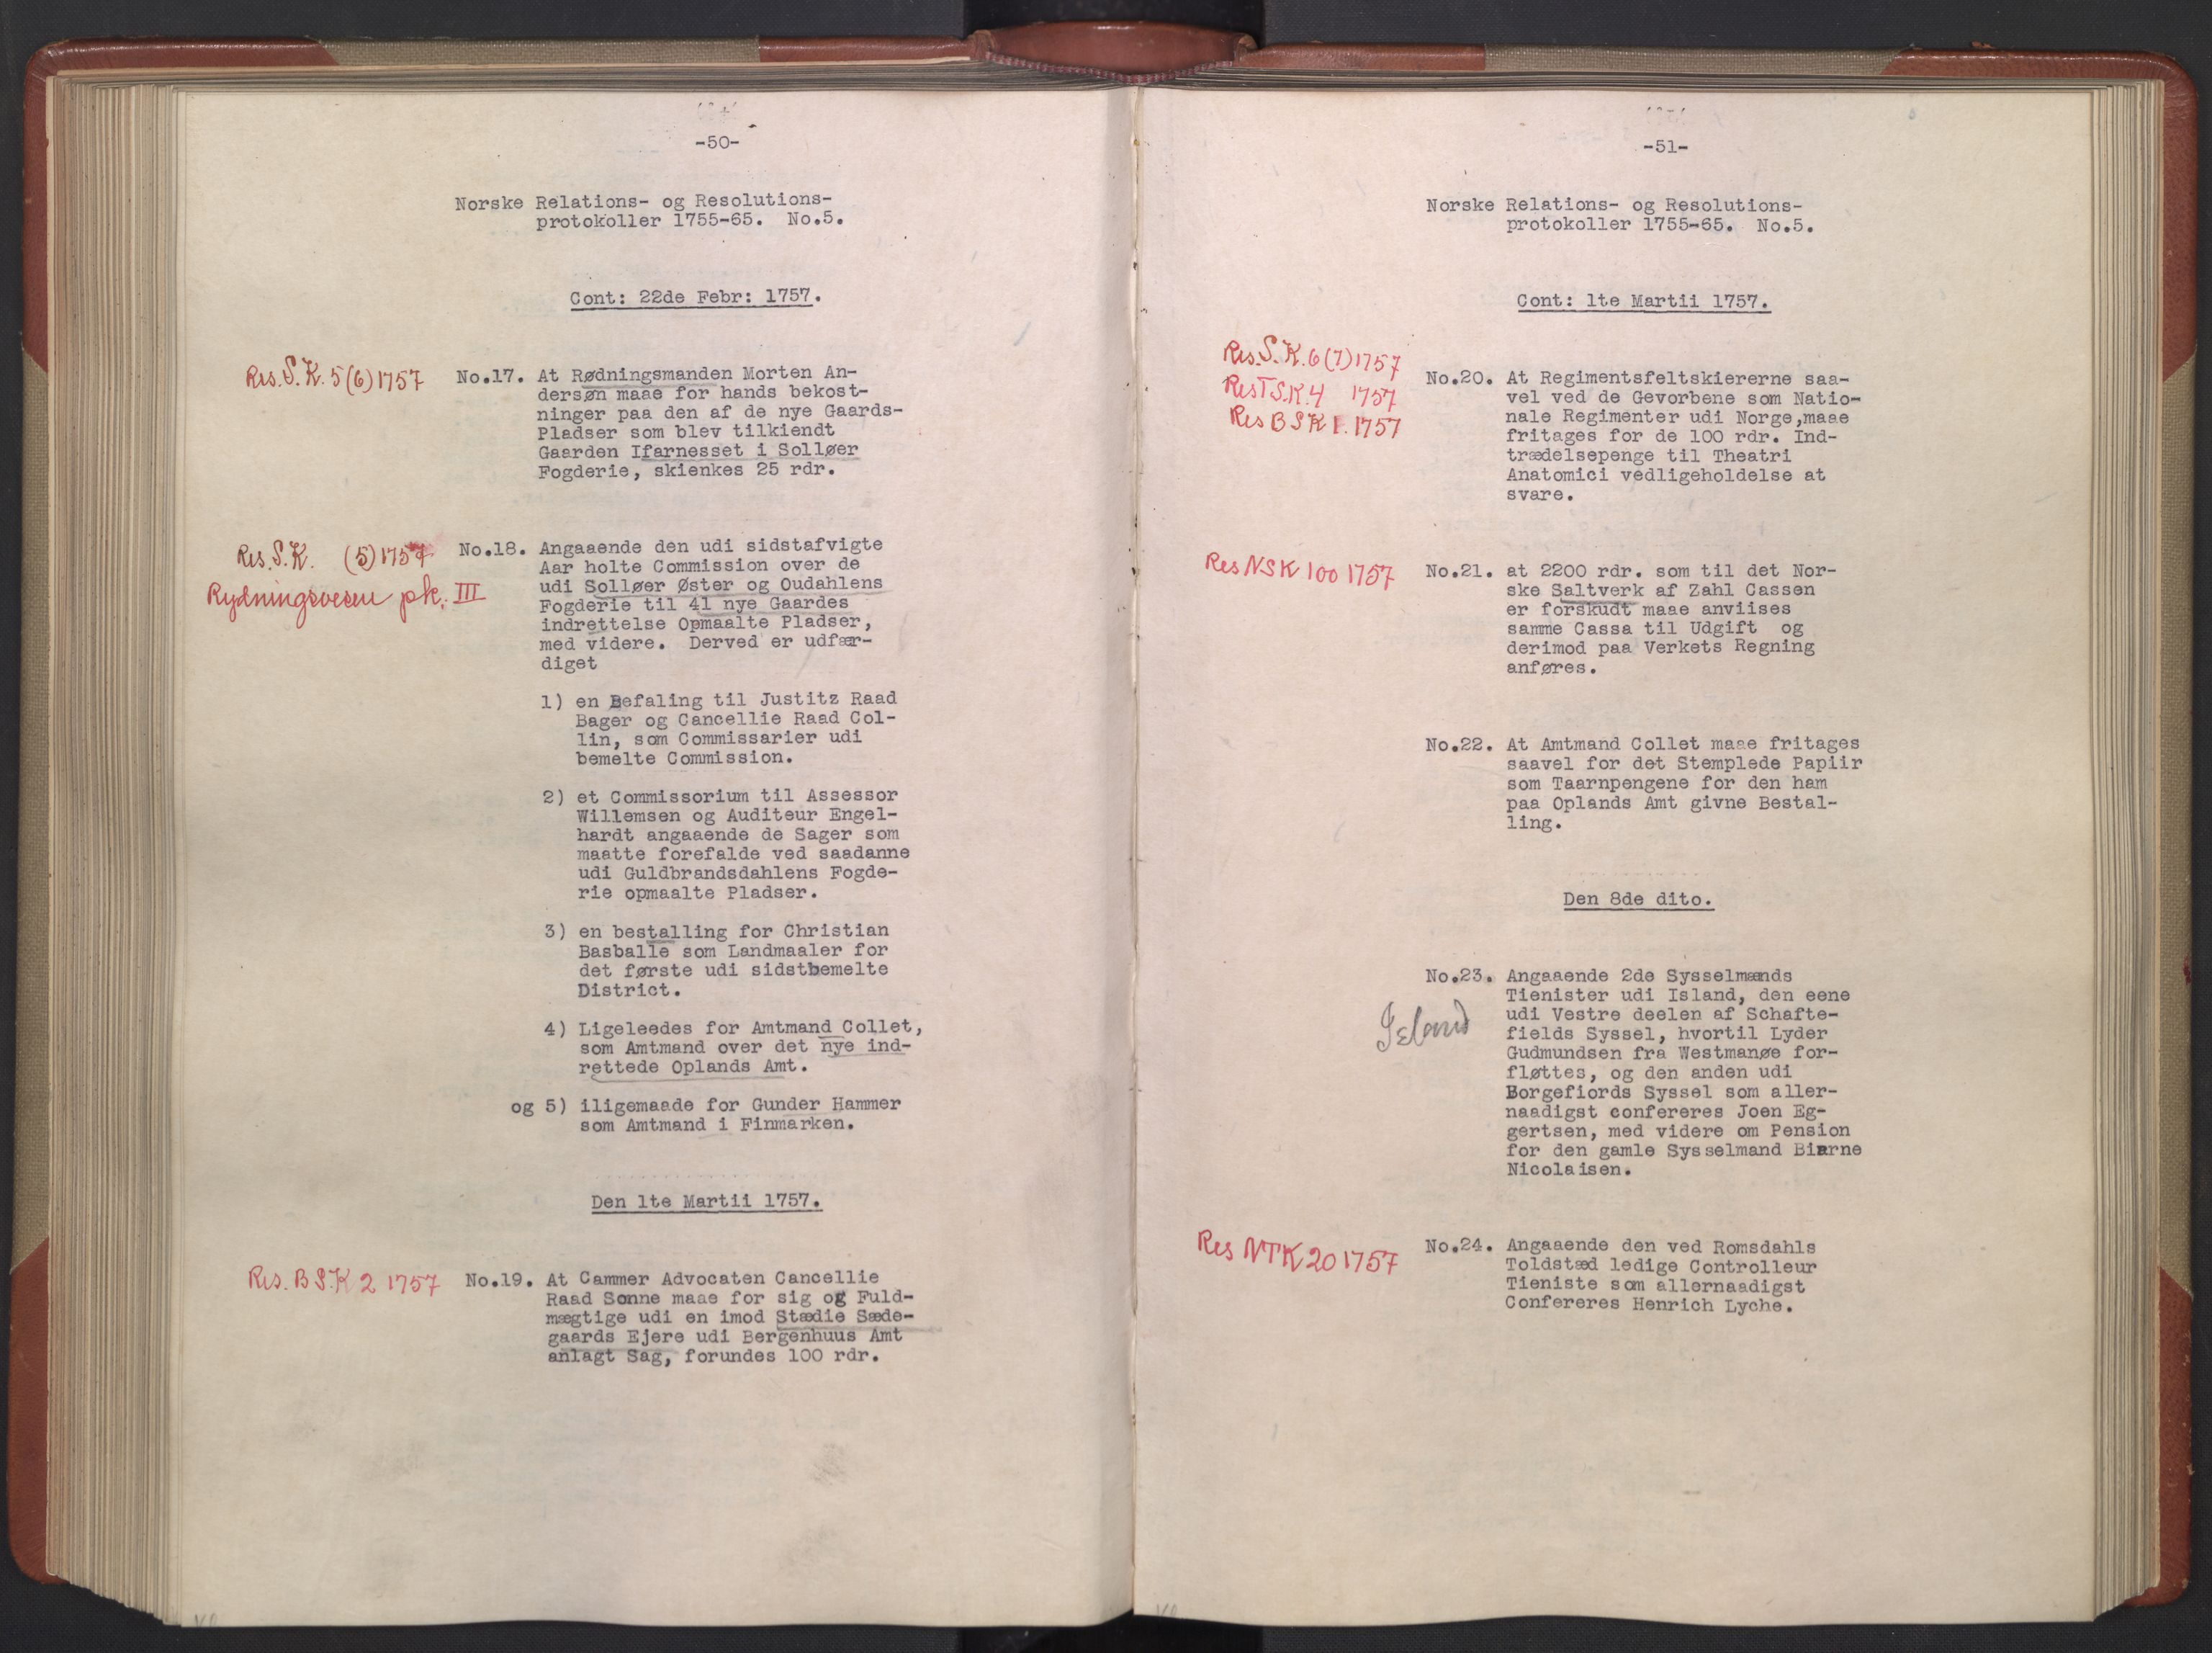 -50-
Norske Relations- og Resolutions-
protokoller 1755-65.  No.5.
Cont: 22de Febr: 1757.
Res. S. K. 5 (6) 1757
No.17. At Rødningsmanden Morten An-
dersøn maae for hands bekost-
ninger paa den af de nye Gaards-
Pladser som blev tilkiendt
Gaarden Ifarnesset i Solløer
Fogderie, skienkes 25 rdr.
Res. S. K. (5) 1757
Rydningsvesen pk. III
No.18. Angaaende den udi sidstafvigte
Aar holte Commission over de
udi Solløer Øster og Oudahlens
Fogderie til 41 nye Gaardes
indrettelse Opmaalte Pladser,
med videre.  Derved er udfær-
diget
1) en Befaling til Justitz Raad
Bager og Cancellie Raad Col-
lin, som Commissarier udi
bemelte Commission.
2) et Commissorium til Assessor
Willemsen og Auditeur Engel-
hardt angaaende de Sager som
maatte forefalde ved saadanne
udi Guldbrandsdahlens Fogde-
rie opmaalte Pladser.
3) en bestalling for Christian
Basballe som Landmaaler for
det første udi sidstbemelte
District.
4) Ligeleedes for Amtmand Collet,
som Amtmand over det nye ind-
rettede Oplands Amt.
og 5) iligemaade for Gunder Hammer
som Amtmand i Finmarken.
Den 1te Martii 1757.
Res. B S. K 2 1757
No.19. At Cammer Advocaten Cancellie
Raad Sonne maae for sig og Fuld-
mægtige udi en imod Stædie Sæde-
gaards Ejere udi Bergenhuus Amt
anlagt Sag, forundes 100 rdr.
-51-
Norske Relations- og Resolutions-
protokoller 1755-65.  No.5.
Cont: 1te Martii 1757.
Res. S. K. 6 (7) 1757
Res T S. K. 4 1757
Res B S K 1. 1757
No.20. At Regimentsfeltskiererne saa-
vel ved de Gevorbene som Natio-
nale Regimenter udi Norge,maae
fritages for de 100 rdr. Ind-
trædelsepenge til Theatri
Anatomici vedligeholdelse at
svare.
Res N S K 100 1757
No.21. at 2200 rdr. som til det Nor-
ske Saltverk af Zahl Cassen
er forskudt maae anviises
samme Cassa til Udgift  og
derimod paa Verkets Regning
anføres.
No.22. At Amtmand Collet maae fritages
saavel for det Stemplede Papiir
som Taarnpengene for den ham
paa Oplands Amt givne Bestal-
ling.
Den 8de dito.
Island
No.23. Angaaende 2de Sysselmænds
Tienister udi Island, den eene
udi Vestre deelen af Schafte-
fields Syssel, hvortil Lyder
Gudmundsen fra Westmanøe for-
fløttes, og den anden udi
Borgefiords Syssel som aller-
naadigst confereres Joen Eg-
gertsen, med videre om Pension
for den gamle Sysselmand Biarne
Nicolaisen.
Res N T K 20 1757
No.24. Angaaende den ved Romsdahls
Toldstæd ledige Controlleur
Tieniste som allernaadigst
Confereres Henrich Lyche.